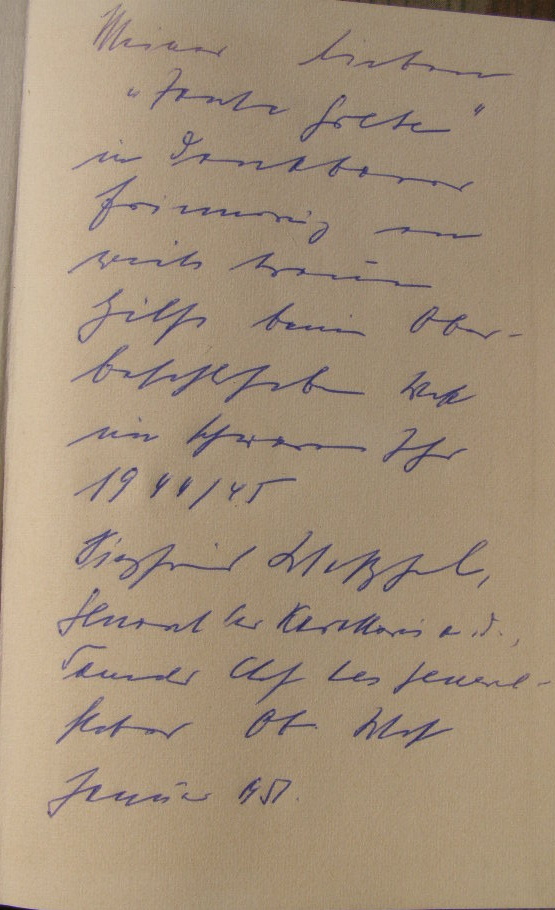 Meiner lieben
"Tante Grete"
in dankbarer
Erinnerung an
viele treue
Hilfe beim Ober-
befehlshaber West
im schweren Jahr
1944/45
Siegfried Westphal,
General der Kavallerie a.D.,
Chef des General-
stabes Ob. West
Januar 1951.